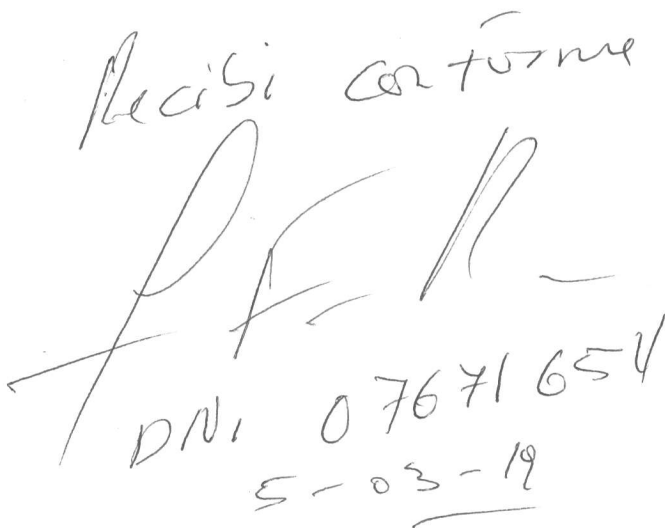 Recibi conforme
DNI 07671654
5-03-19